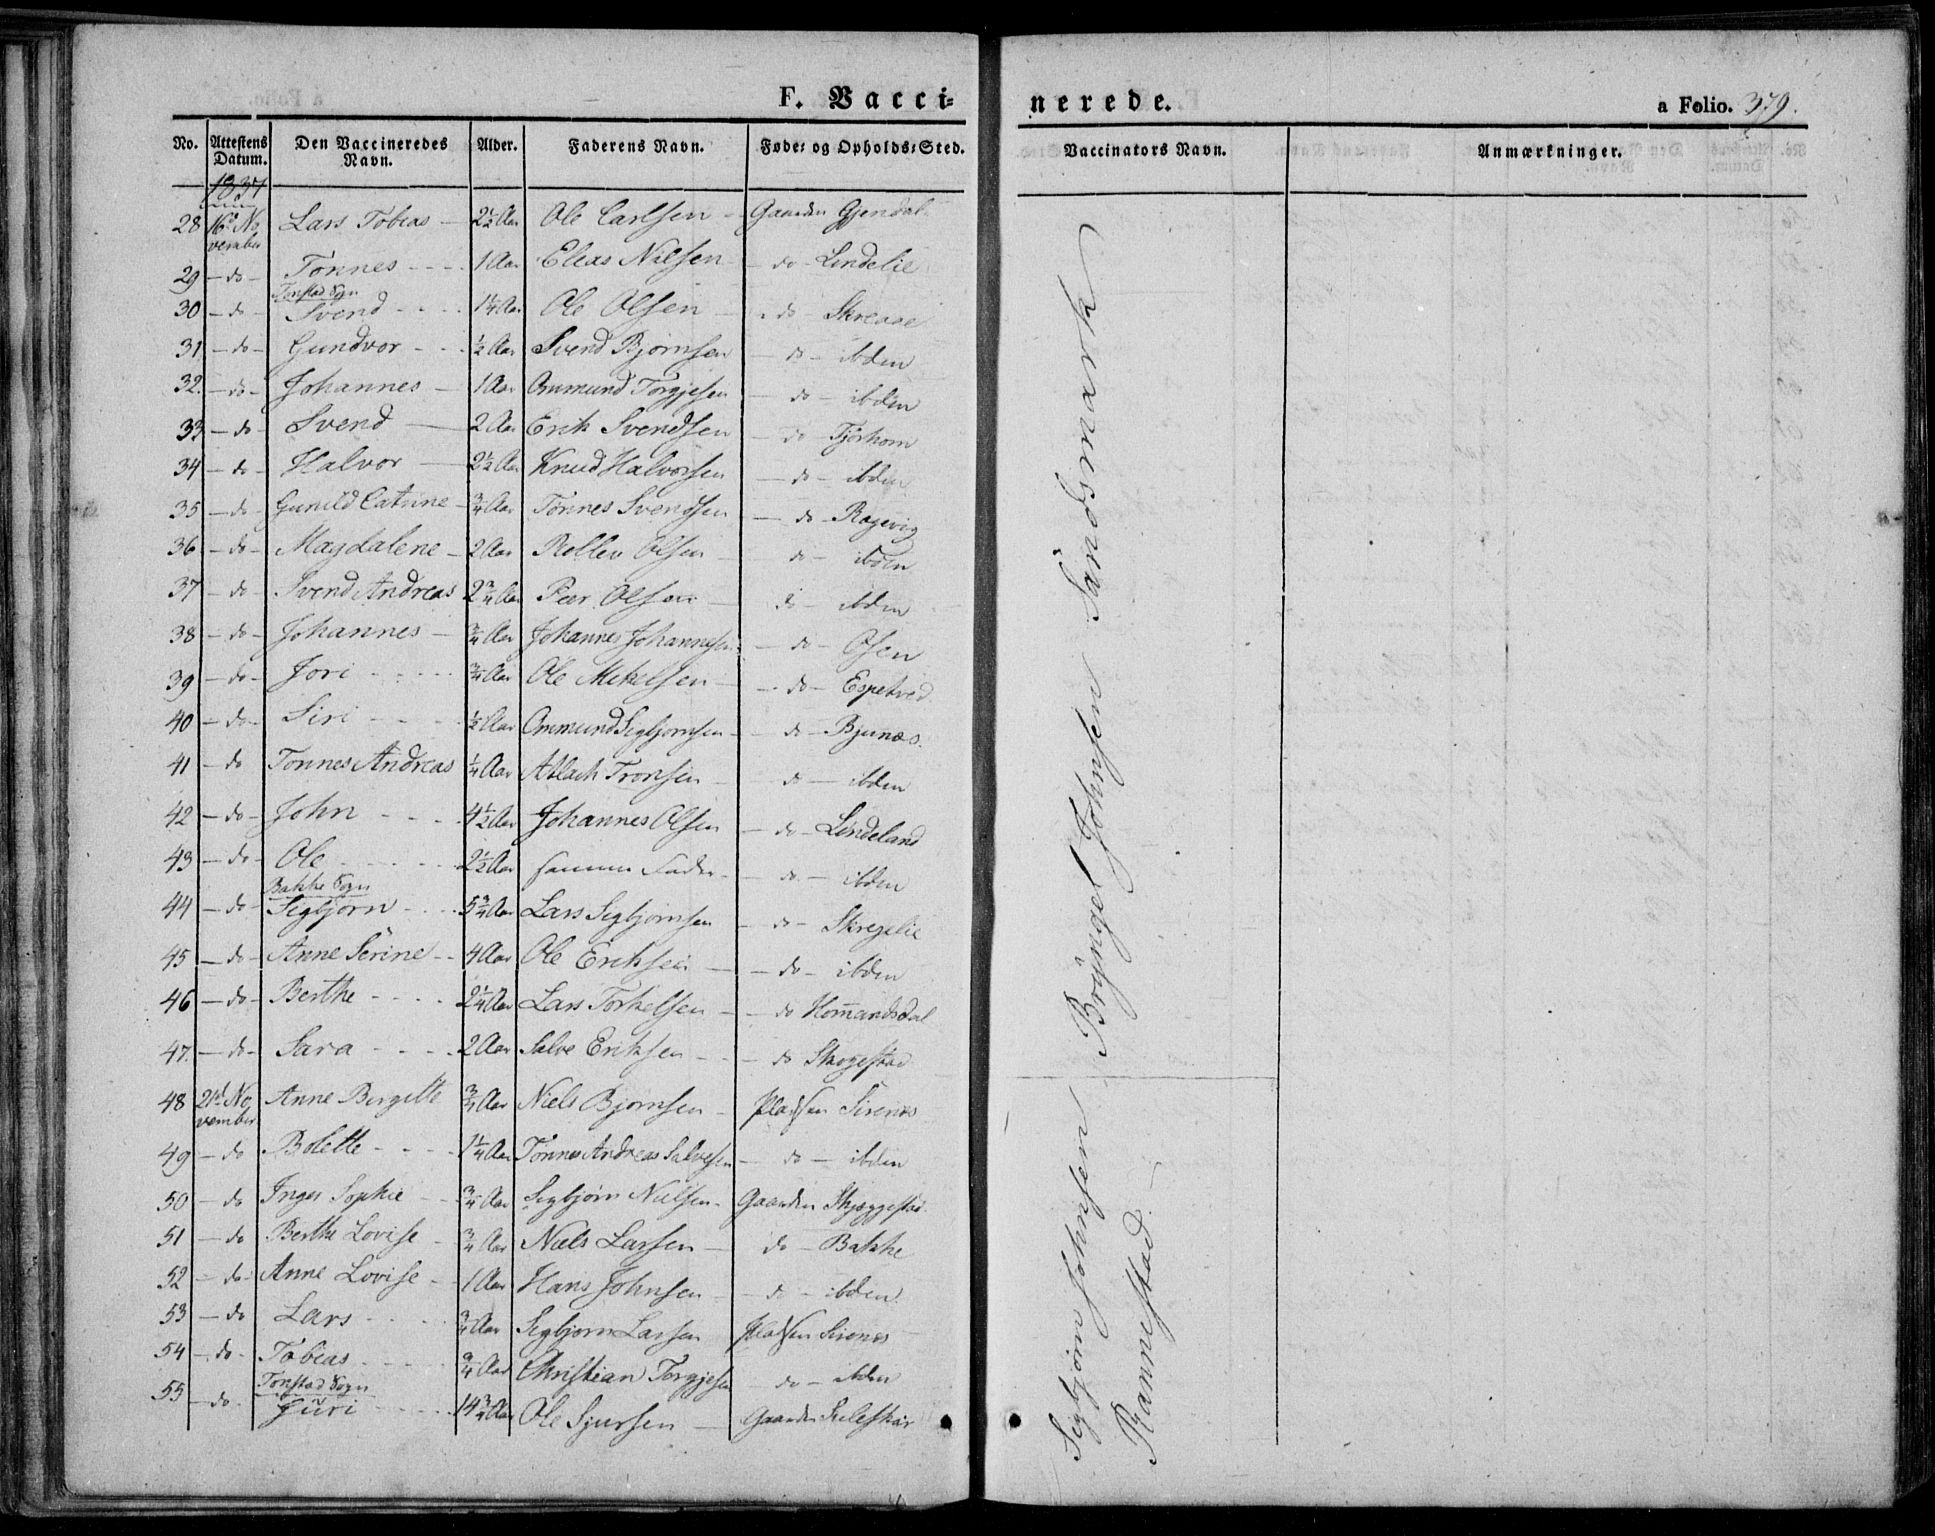 F. Vacci-
nerede.
a Folio. 379.
No. Attestens Datum. Den Vaccineredes Navn. Alder. Faderens Navn. Føde- og Opholds-Sted. Vaccinators Navn. Anmærkninger.
1837
28 16d No Lars Tobias - 2½ Aar Ole Carlsen - Gaarden Gjendal
vember
29 - do - Tonnes - - - 1 Aar Elias Nilsen - do - Lindelie
Tonstad Sogn
30 - do - Svend - - - 1¼ Aar Ole Olsen - do - Skreaae
31 - do - Gundvor - - - ½ Aar Svend Bjørnsen - do - ibden
32. - do - Johannes - 1 Aar Ommund Torgjesen - do - ibden
33 - do - Svend - 2 Aar Erik Svendsen - do - Tjørhom
34 - do - Halvor - 2½ Aar Knud Halvorsen - do - ibden
35 - do - Gunild Catrine - ¾ Aar Tönnes Svendsen - do - Ragevig
36 - do - Magdalene - 2 Aar Rellev Olsen - do - ibden
37 - do - Svend Andreas 2¾ Aar Peer Olsen - do - ibden
38 - do - Johannes - ¾ Aar Johannes Johannesen - do - Osen
39 - do - Jori - - - ¾ Aar Ole Mikelsen - do - Espetved
40 - do - Siri - - - ½ Aar Ommund Segbjornsen - do - Bjunæs.
41 - do Tonnes Andreas ¼ Aar Atlach Tronsen - do - ibden
42 - do - John - - - 4½ Aar Johannes Olsen - do - Lindeland
43 - do - Ole - - - 2½ Aar samme Fader - do - ibden
Bakke Sogn
44 - do - Segbjørn - - - 5¾ Aar Lars Segbjornsen - do - Skregelie
45 - do - Anne Serine - - 4 Aar Ole Eriksen - do - ibden
46 - do - Berthe - - - 2¼ Aar Lars Torkelsen - do Homandsdal
47. - do - Sara - - - 2 Aar Salve Eriksen - - do Skogestad
48 21d No Anne Birgitte ¾ Aar Niels Bjornsen - Pladsen Sirenæs
vember
49 - do Bolette - - - 1¼ Aar Tonnes Andreas Salvesen - do - ibden
50 - do Inger Sophie - - ¾ Aar Segbjørn Nielsen - Gaarden Skjeggestad
51 - do Berthe Lovise - ¾ Aar Niels Larsen - do - Bakke
52 - do - Anne Lovise - 1 Aar Hans Johnsen - do - ibden
53 - do Lars - - - ¾ Aar Segbjorn Larsen Pladsen Sirenæs
54 - do - Tobias - - - ¾ Aar Christian Torgjesen do - ibden
Tonstad Sogn
55 - do - Jüri - - - 14¾ Aar Ole Sjursen - Gaarden Suleskar
Bryngel Johnsen Sandsmark
Segbjorn Johnsen
Rannestad.